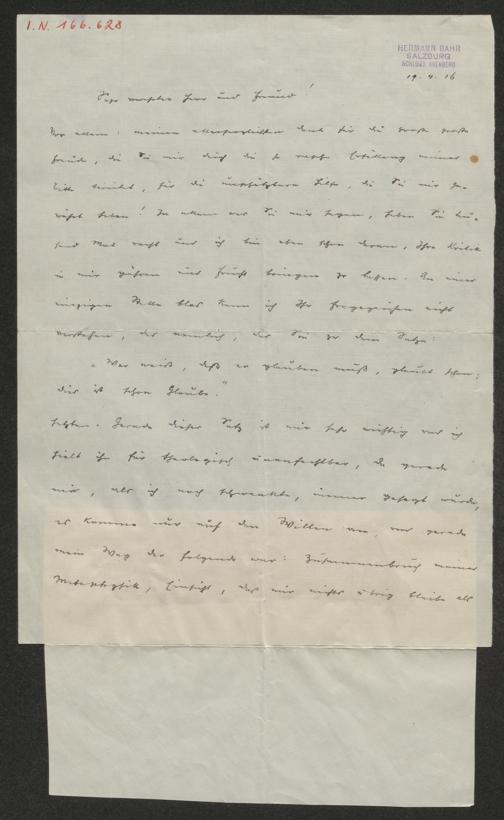 I.N. 166.628
HERMANN BAHR
SALZBURG
SCHLOSS ARENBERG
19. 4. 16
Sehr verehrter Herr und Freund!
Vor allem: meinen allerherzlichsten Dank für die große große
Freude, die Sie mir durch die so rasche Erfüllung meiner
Bitte bereitet, für die unschätzbare Hilfe, die Sie mir ge-
währt haben! In allem was Sie mir sagen, haben Sie tau-
send Mal recht und ich bin eben schon daran, Ihre Kritik
in mir gähren und Frucht bringen zu lassen. An einer
einzigen Stelle blos kann ich Ihr Fragezeichen nicht
verstehen, das nämlich, das Sie zu dem Satze:
„Wer weiß, daß er glauben muß, glaubt schon;
dies ist schon Glaube."
setzten. Gerade dieser Satz ist mir sehr wichtig und ich
hielt ihn für theologisch unanfechtbar, da gerade
mir, als ich noch schwankte, immer gesagt wurde,
es komme nur auf den Willen an, und gerade
mein Weg der folgende war: Zusammenbruch meiner
Metaphysik, Einsicht, daß mir nichts übrig bleibe als